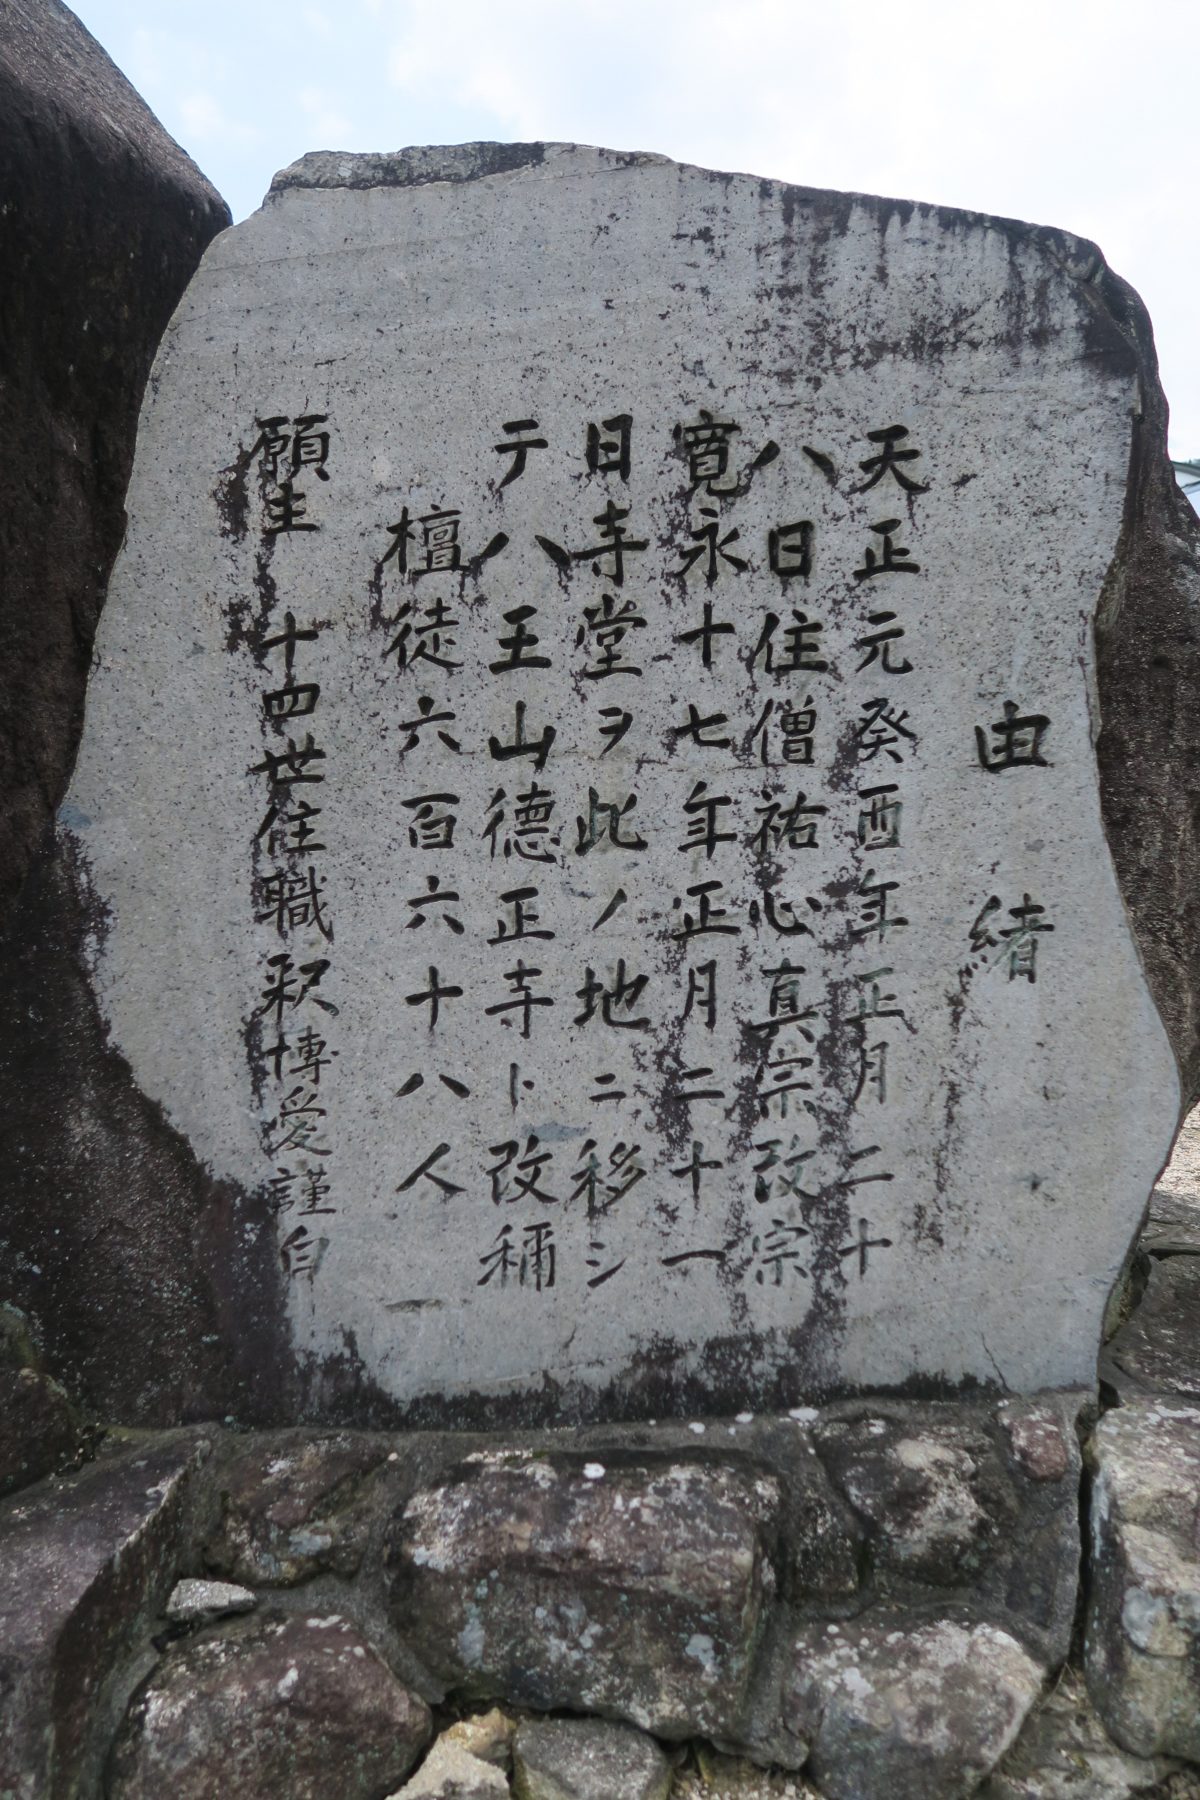 由緒
天正元癸酉年正月二十
八日住僧祐心真宗改宗
寛永十七年正月二十一
日寺堂ヲ此ノ地ニ移シ
テ八王山徳正寺ト改称
檀徒六百六十八人
願主 十四世住職釈博愛謹白